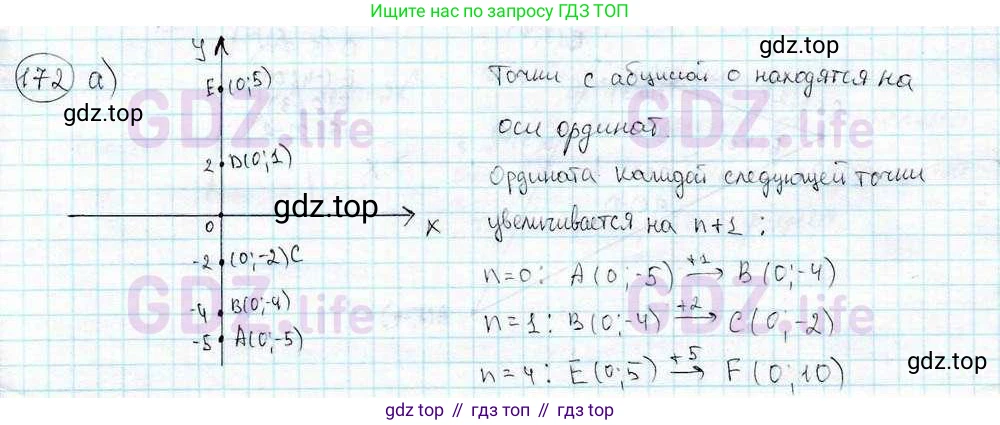 Ищите по запросу ГДЗ ТОП
172 а)
gdz.top
y
E (0;5)
2 D(0;1)
0
x
gdz.top
-2 (0;-2)C
-4 B(0;-4)
-5 A(0;-5)
Точки с абцисой 0 находятся на
оси ординат.
Ордината каждой следующей точки
увеличивается на n+1:
n=0: A(0;-5) +1 → B(0;-4)
n=1: B(0;-4) +2 → C(0;-2)
n=4: E(0;5) +5 → F(0;10)
gdz.top
gdz.top
GDZ.life
GDZ.life
GDZ.life
GDZ.life
gdz.top // гдз топ // gdz.top